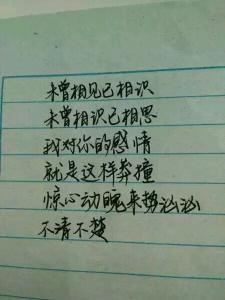 未曾相见已相识
未曾相识已相思
我对你的感情
就是这样莽撞
惊心动魄来势汹汹
不清不楚